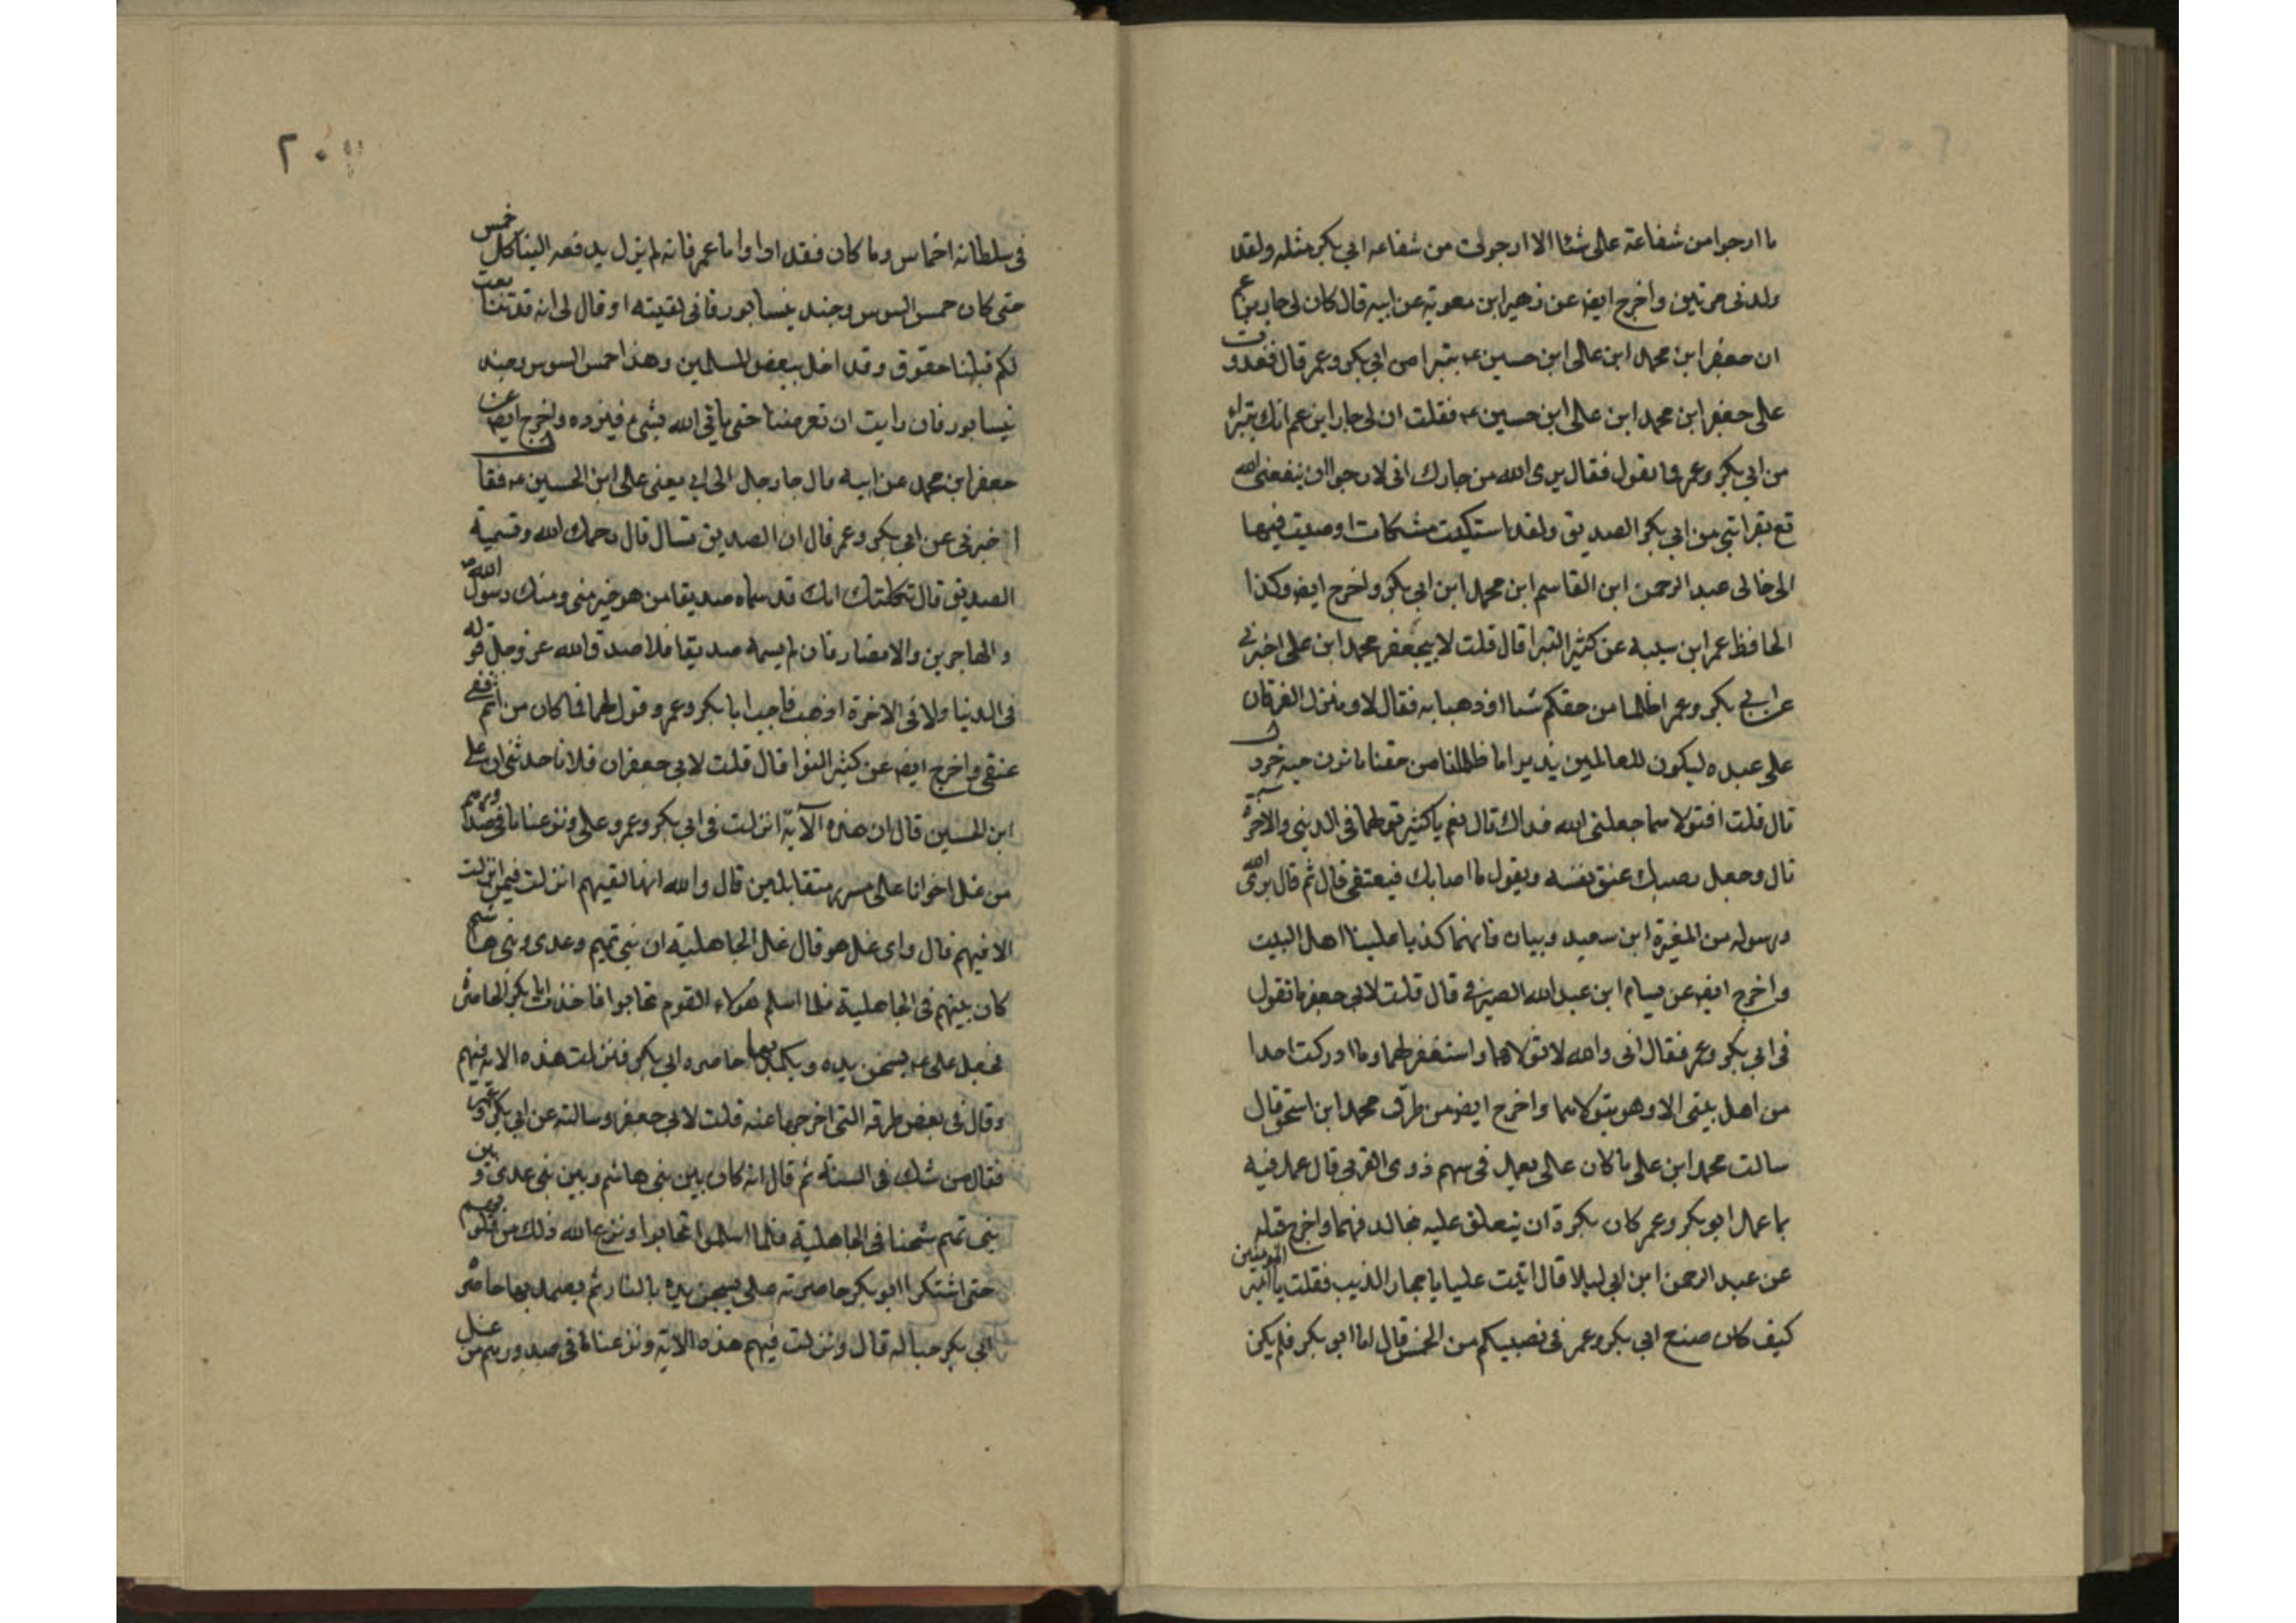 ما ارجوا من شفاعة على شئا الا ارجوات من شفاعه ابي بكر مثله ولقد
ولدنى مرتين واخرج ايضا عن زهير ابن معوية عن ابيه قال كان لى جار يزعم
ان جعفر ابن محمد ابن عالى ابن حسين ع يتبرا من ابي بكر وعمر قال فغدوت
على جعفر ابن محمد ابن على ابن حسين ع فقلت ان لى جار ابن عم انك تتبراء
من ابي بكر وعمر فما تقول فقال برى الله من جارك انى لارجوا ان ينفعنى الله
تع بقرابتى من ابي بكر الصديق ولقد استكيت مشكات اوصيت فيها
الى خالى عبد الرحمن ابن القاسم ابن محمد ابن ابي بكر واخرج ايضا وكذا
الحافظ عمر ابن عن كثير قال قلت لابيجعفر محمد ابن على اخبرنى
عن ابي بكر وعمر اظلما من حقكم شئا او ذهبا به فقال لا ومنزل الفرقان
على عبده ليكون للعالمين نذيرا ما ظلمنا من حقنا حبه خردل
قال قلت افتولاهما جعلنى الله فداك قال نعم يا كثير تولهما فى الدينى والاخرة
قال وجعل عنق نفسه ويقول ما اصابك فبعنقى قال ثم قال برى الله
ورسوله من المغيرة ابن سعيد وبيان فانهما كذبا علينا اهل البيت
واخرج ايضا عن بسام ابن عبد الله الصيرفى قال قلت لابي جعفر ما تقول
فى ابي بكر وعمر فقال انى والله لاتولاهما واستغفر لهما وما ادركت احدا
من اهل بيتى الا وهو يتولاهما واخرج ايضا من طرق محمد ابن اسحق قال
سالت محمد ابن على ما كان عالى يعمل فى سهم ذوى القربى قال عمل فيه
بما عمل ابو بكر وعمر كان يكره ان يتعلق عليه
عن عبد الرحمن ابن ابي ليلا قال اتيت عليا فقلت يا امير المومنين
كيف كان صنع ابي بكر وعمر فى نصيبكم من الخمس قال اما ابو بكر فلم يكن
فى سلطانه اخماس وما كان فقد اوا واما عمر فانه لم يزل يدفعه الينا كل خمس
حتى كان خمس السوس وجند نيسابور فانى لقيته او قال لى انه قد تتابعت
لكم قبلنا حقوق وقد اخل ببعض المسلمين وهذا خمس السوس وجند
نيسابور فان رايت ان تعرضنا حتى ياتى الله بشىء فيرده واخرج ايضا عن
جعفر ابن محمد عن ابيه قال جا رجل الى ابي يعنى على ابن الحسين ع فقال
اخبرنى عن ابي بكر وعمر قال ان الصديق تسال قال رحمك الله وتسمية
الصديق قال ثكلتك امك قد سماه صديقا من هو خير منى ومنك رسول الله
والمهاجرين والانصار فان لم يسمه صديقا فلا صدق الله عز وجل قوله
فى الدنيا ولا فى الاخرة اذهب فاحبب ابا بكر وعمر وقول لهما فما كان من اثم ففى
عنقى واخرج ايضا عن كثير النوا قال قلت لابي جعفر ان فلانا حدثنى ان على
ابن الحسين قال ان هذه الآية انزلت فى ابي بكر وعمر وعلى ونزعنا ما فى صدورهم
من غل اخوانا على سرر متقابلين قال والله انها لفيهم انزلت فيمن انزلت
الا فيهم قال واى غل هو قال غل الجاهلية ان بنى تميم وعدى وبنى هاشم
كان بينهم فى الجاهلية فلما اسلم هولاء القوم تحابوا فاخذت ابا بكر الخاصره
فجعل على ع يسخن يده ويكمد بها خاصره ابي بكر فنزلت هذه الاية فيهم
وقال فى بعض طرقه التى اخرجها عنه قلت لابي جعفر وسالته عن ابي بكر وعمر
فقال من شك فى السنة ثم قال انه كان بين بنى هاشم وبين بنى عدى وبين
بنى تميم شحنا فى الجاهلية فلما اسلموا تحابوا ونزع الله ذلك من قلوبهم
حتى اشتكرا ابو بكر خاصرته على يسخن يده بالنار ثم يضمد بها خاصره
ابي بكر حبا له قال ونزلت فيهم هذه الاية ونزعنا ما فى صدورهم من غل